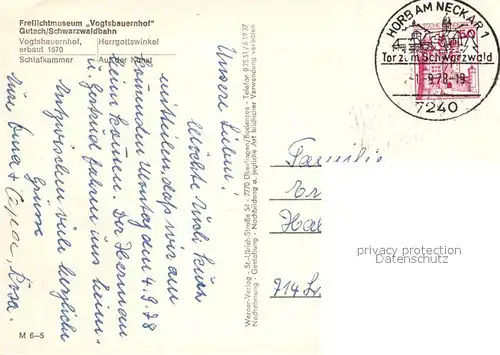 Freilichtmuseum „Vogtsbauernhof"
Gutach/Schwarzwaldbahn
Vogtsbauernhof, Herrgottswinkel
erbaut 1570
Schlafkammer Auf der Kunst
Unsere Lieben!
Möchte Euch kurz
mitteilen, daß wir am
kommenden Montag den 4.9.78
heim kommen. Der Herman
u. Gertrud fahren uns heim.
Inzwischen viele herzliche
Grüsse
Rosa.
M 6–5
Werner-Verlag · St.-Ulrich-Straße 34 · 7770 Überlingen/Bodensee · Telefon 07551/61937
Nachahmung · Gestaltung · Nachbildung u. jegliche Art bildlicher Verwendung verboten
HORB AM NECKAR 1
Tor zum Schwarzwald
-1.-9.78.-19
7240
50
Familie
714 Lu
privacy protection
AnsichtskartenCenter.de